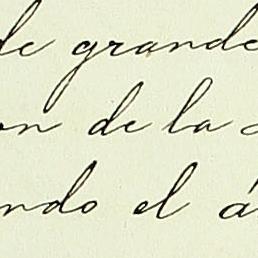 de grande
on de la
ndo el á